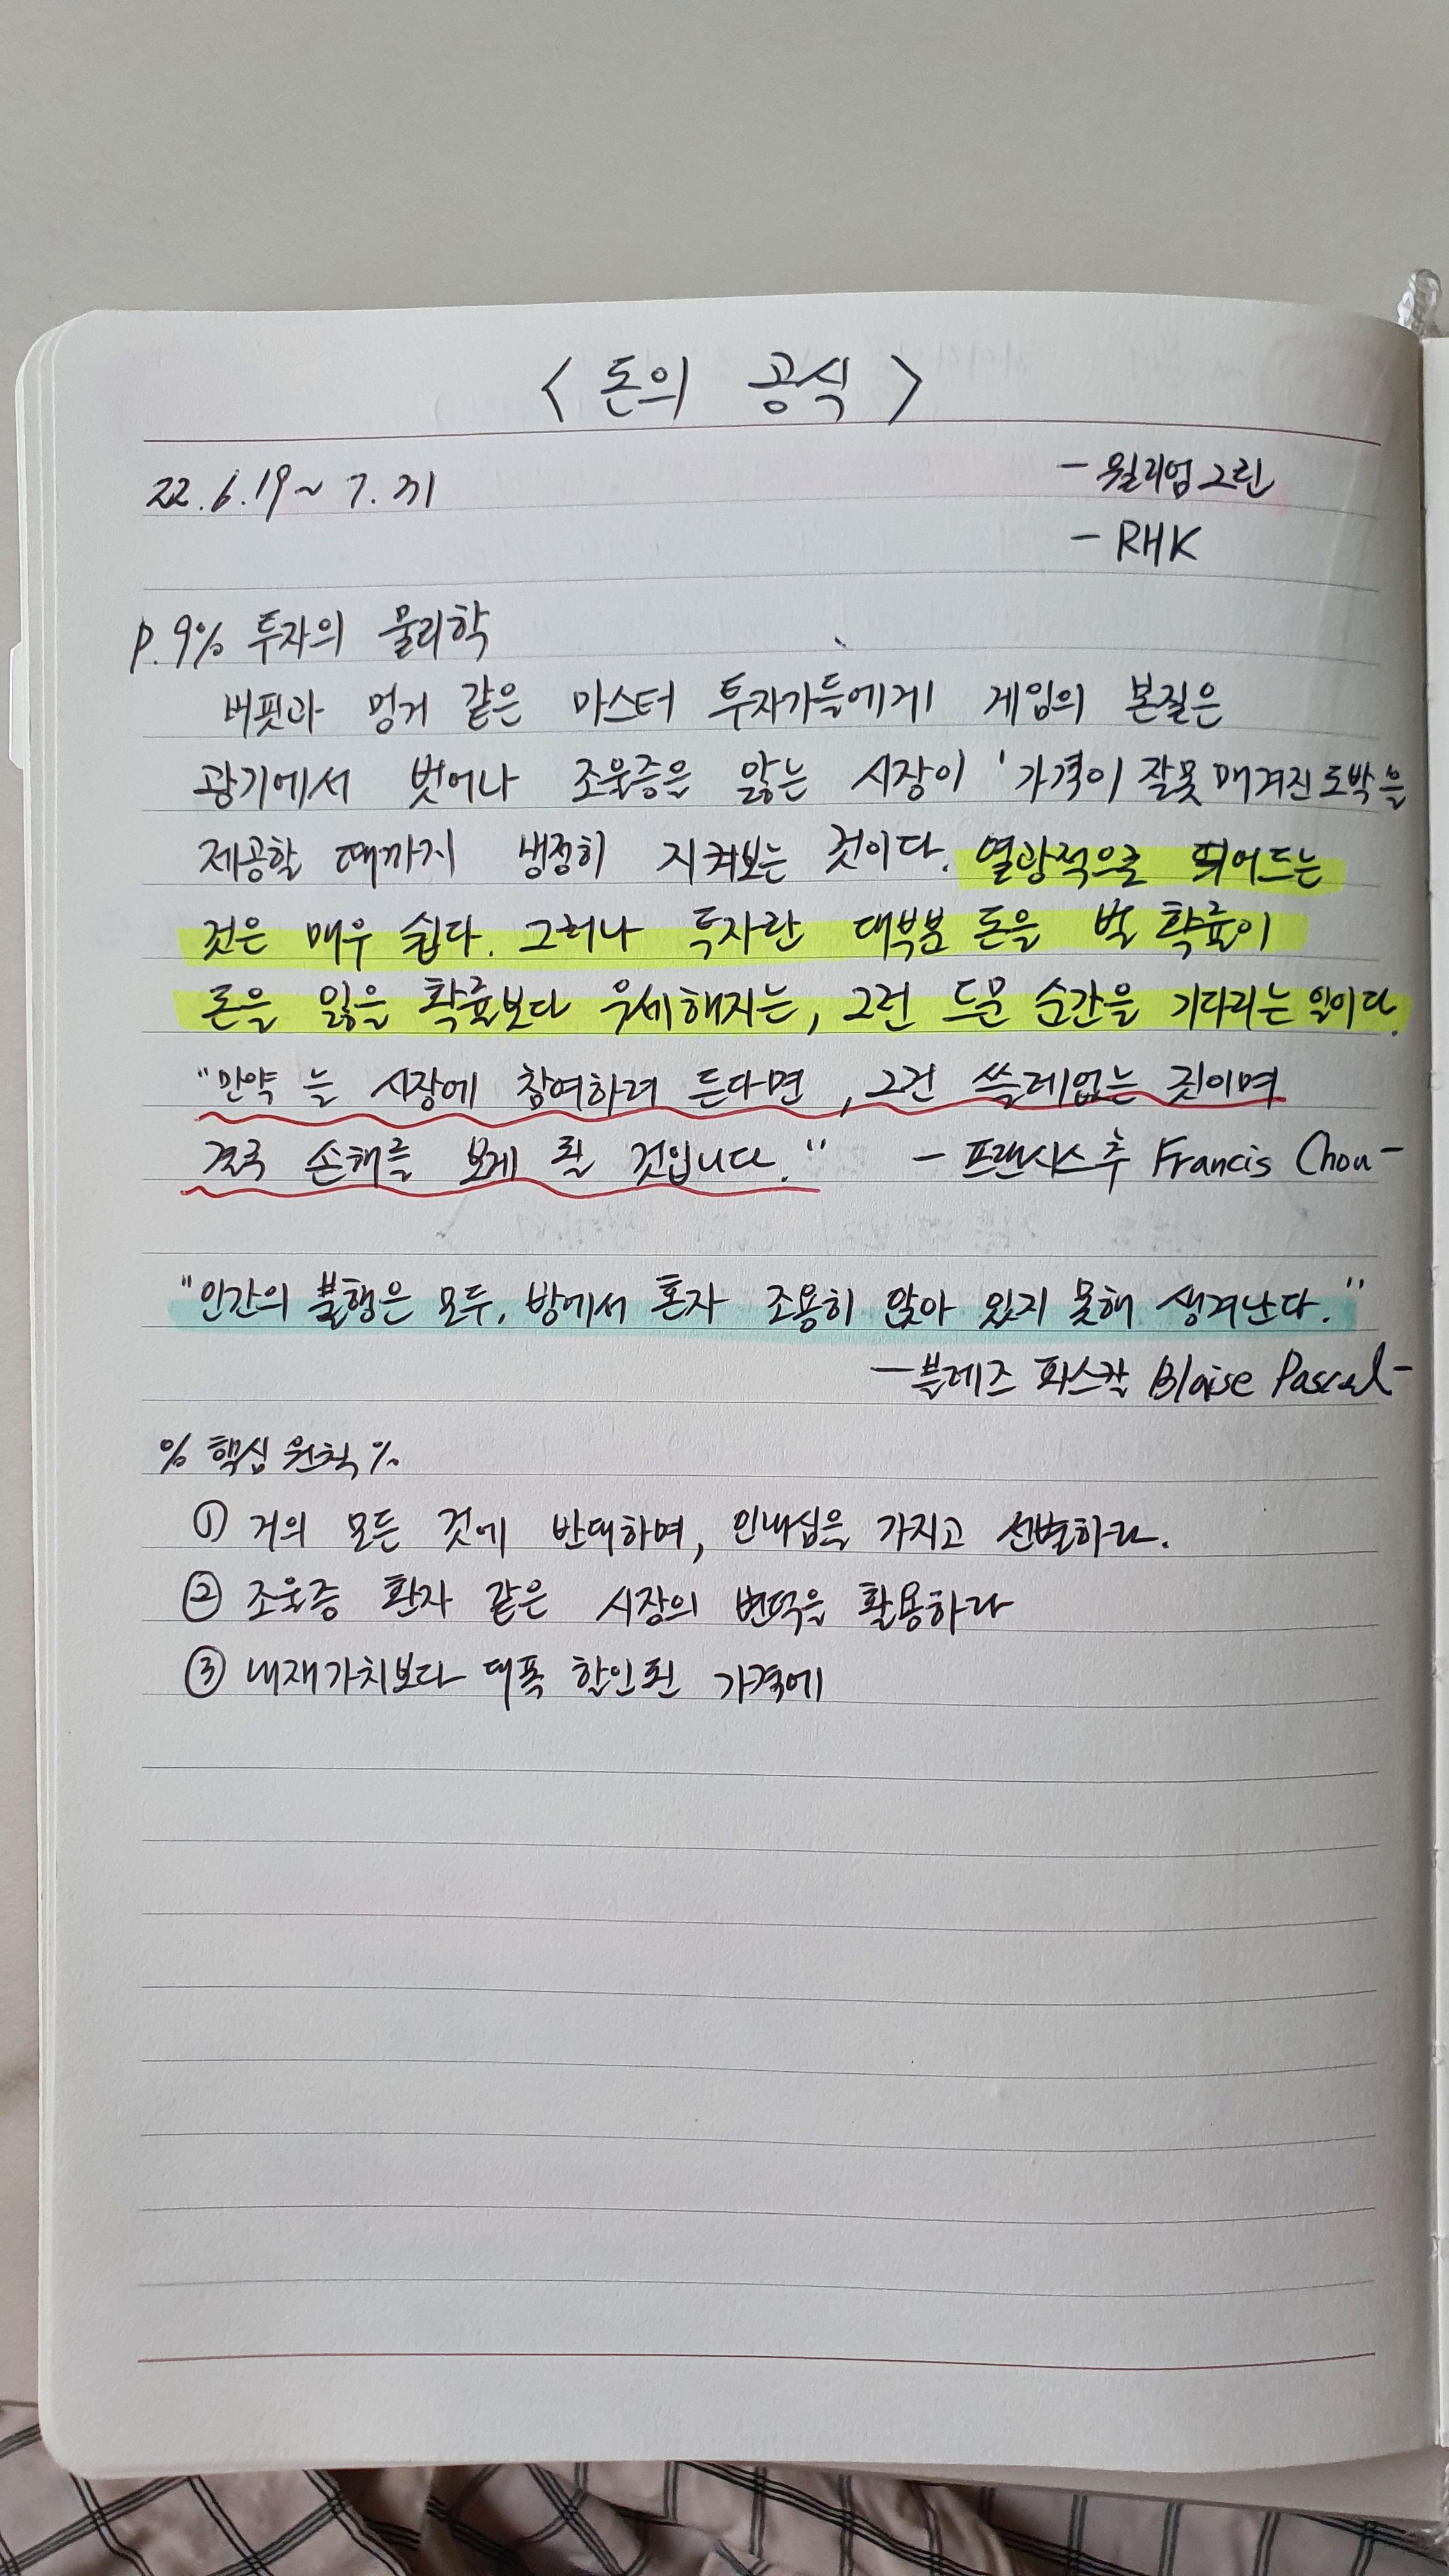 < 돈의 공식 >
22.6.19~ 7.31
- 윌리엄 그린
- RHK
p.9% 투자의 물리학
버핏과 멍거 같은 마스터 투자가들에게 게임의 본질은
광기에서 벗어나 조울증은 앓는 시장이 '가격이 잘못 매겨진 도박'을
제공할 때까지 냉정히 지켜보는 것이다. 열광적으로 뛰어드는
것은 매우 쉽다. 그러나 투자란 대부분 돈을 벌 확률이
돈을 잃을 확률보다 우세해지는, 그런 드문 순간을 기다리는 일이다.
"만약 늘 시장에 참여하려 든다면, 그건 쓸데없는 짓이며
결국 손해를 보게 될 것입니다." - 프랜시스 추 Francis Chou -
"인간의 불행은 모두, 방에서 혼자 조용히 앉아 있지 못해 생겨난다."
- 블레즈 파스칼 Blaise Pascal -
% 핵심 원칙 %
① 거의 모든 것에 반대하며, 인내심을 가지고 선별하라.
② 조울증 환자 같은 시장의 변덕을 활용하라
③ 내재가치보다 대폭 할인된 가격에